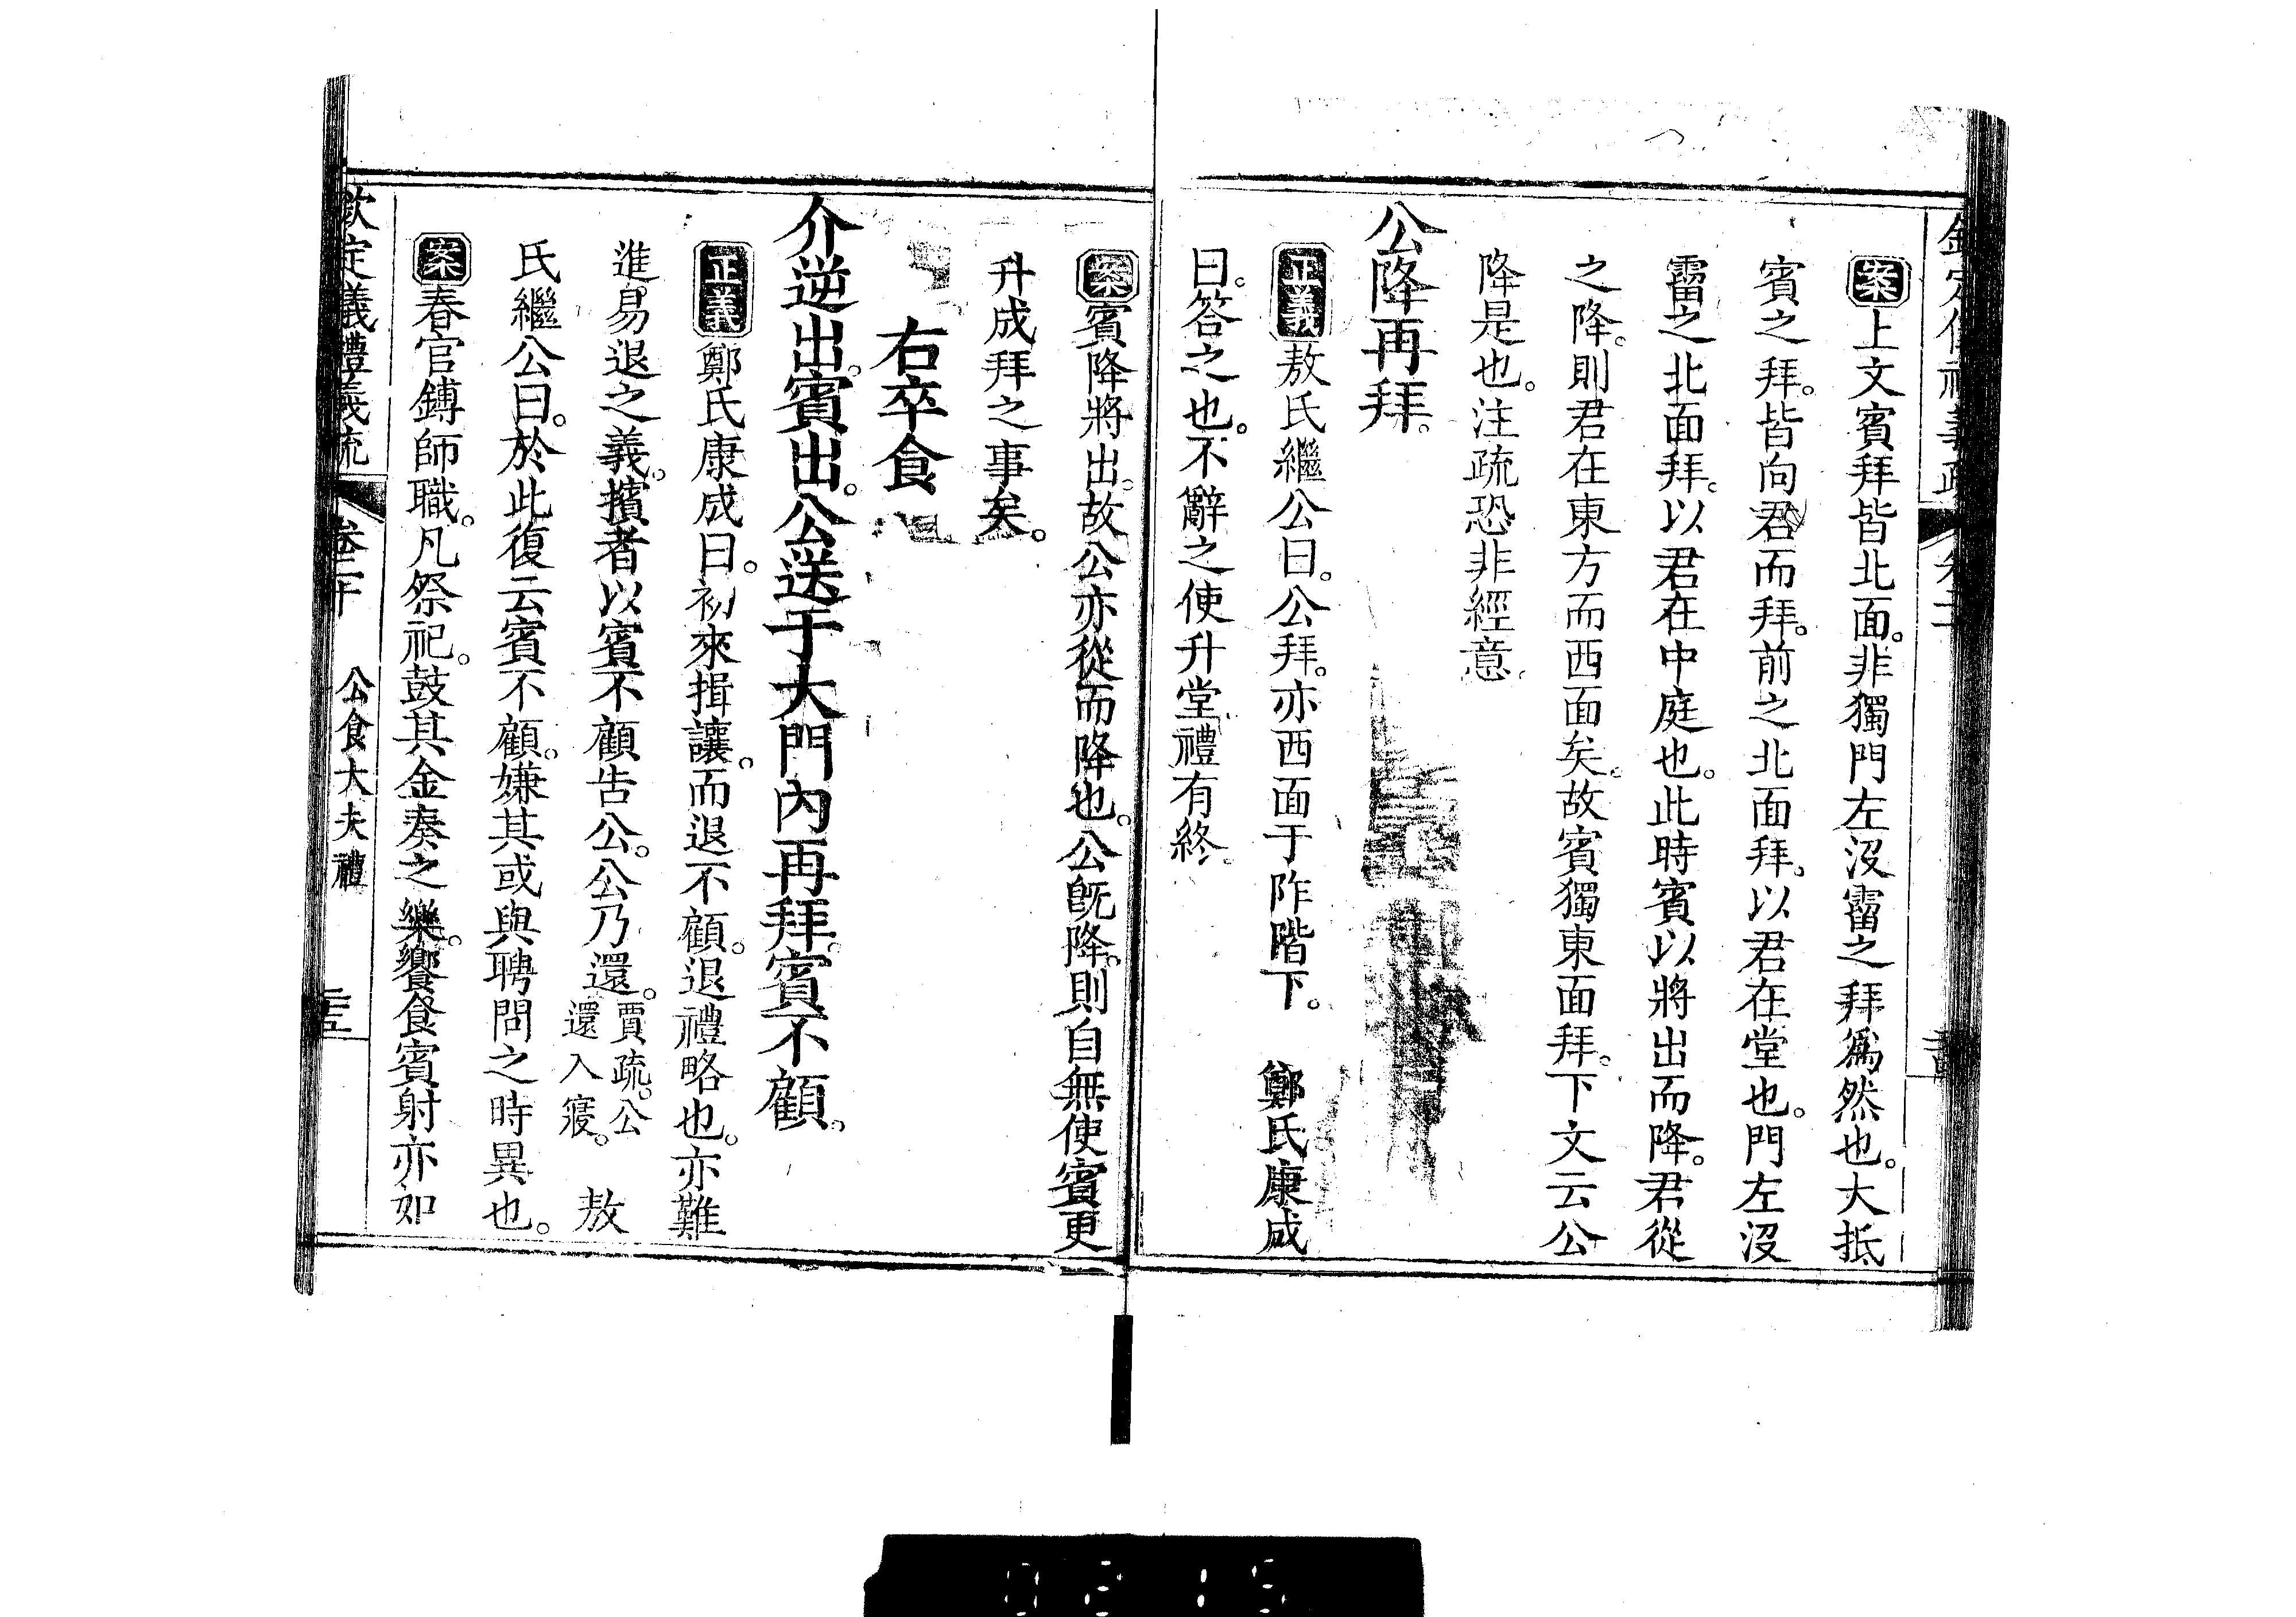 案上文賓拜皆北面。非獨門左沒霤之拜爲然也。大抵
賓之拜。皆向君而拜。前之北面拜。以君在堂也。門左沒
霤之北面拜。以君在中庭也。此時賓以將出而降。君從
之降。則君在東方而西面矣。故賓獨東面拜。下文云公
降是也。注疏恐非經意。
公降再拜。
正義敖氏繼公曰。公拜。亦西面于阼階下。 鄭氏康成
曰。答之也。不辭之使升堂。禮有終。
案賓降將出。故公亦從而降也。公旣降。則自無使賓更
升成拜之事矣。
右卒食
介逆出。賓出。公送于大門內再拜。賓不顧。
正義鄭氏康成曰。初來揖讓。而退不顧。退禮略也。亦難
進易退之義。擯者以賓不顧告公。公乃還。賈疏。公還入寢。 敖
氏繼公曰。於此復云賓不顧。嫌其或與聘問之時異也。
案春官鏄師職。凡祭祀。鼓其金奏之樂。饗食賓射亦如
欽定儀禮義疏 卷二十 公食大夫禮 三五